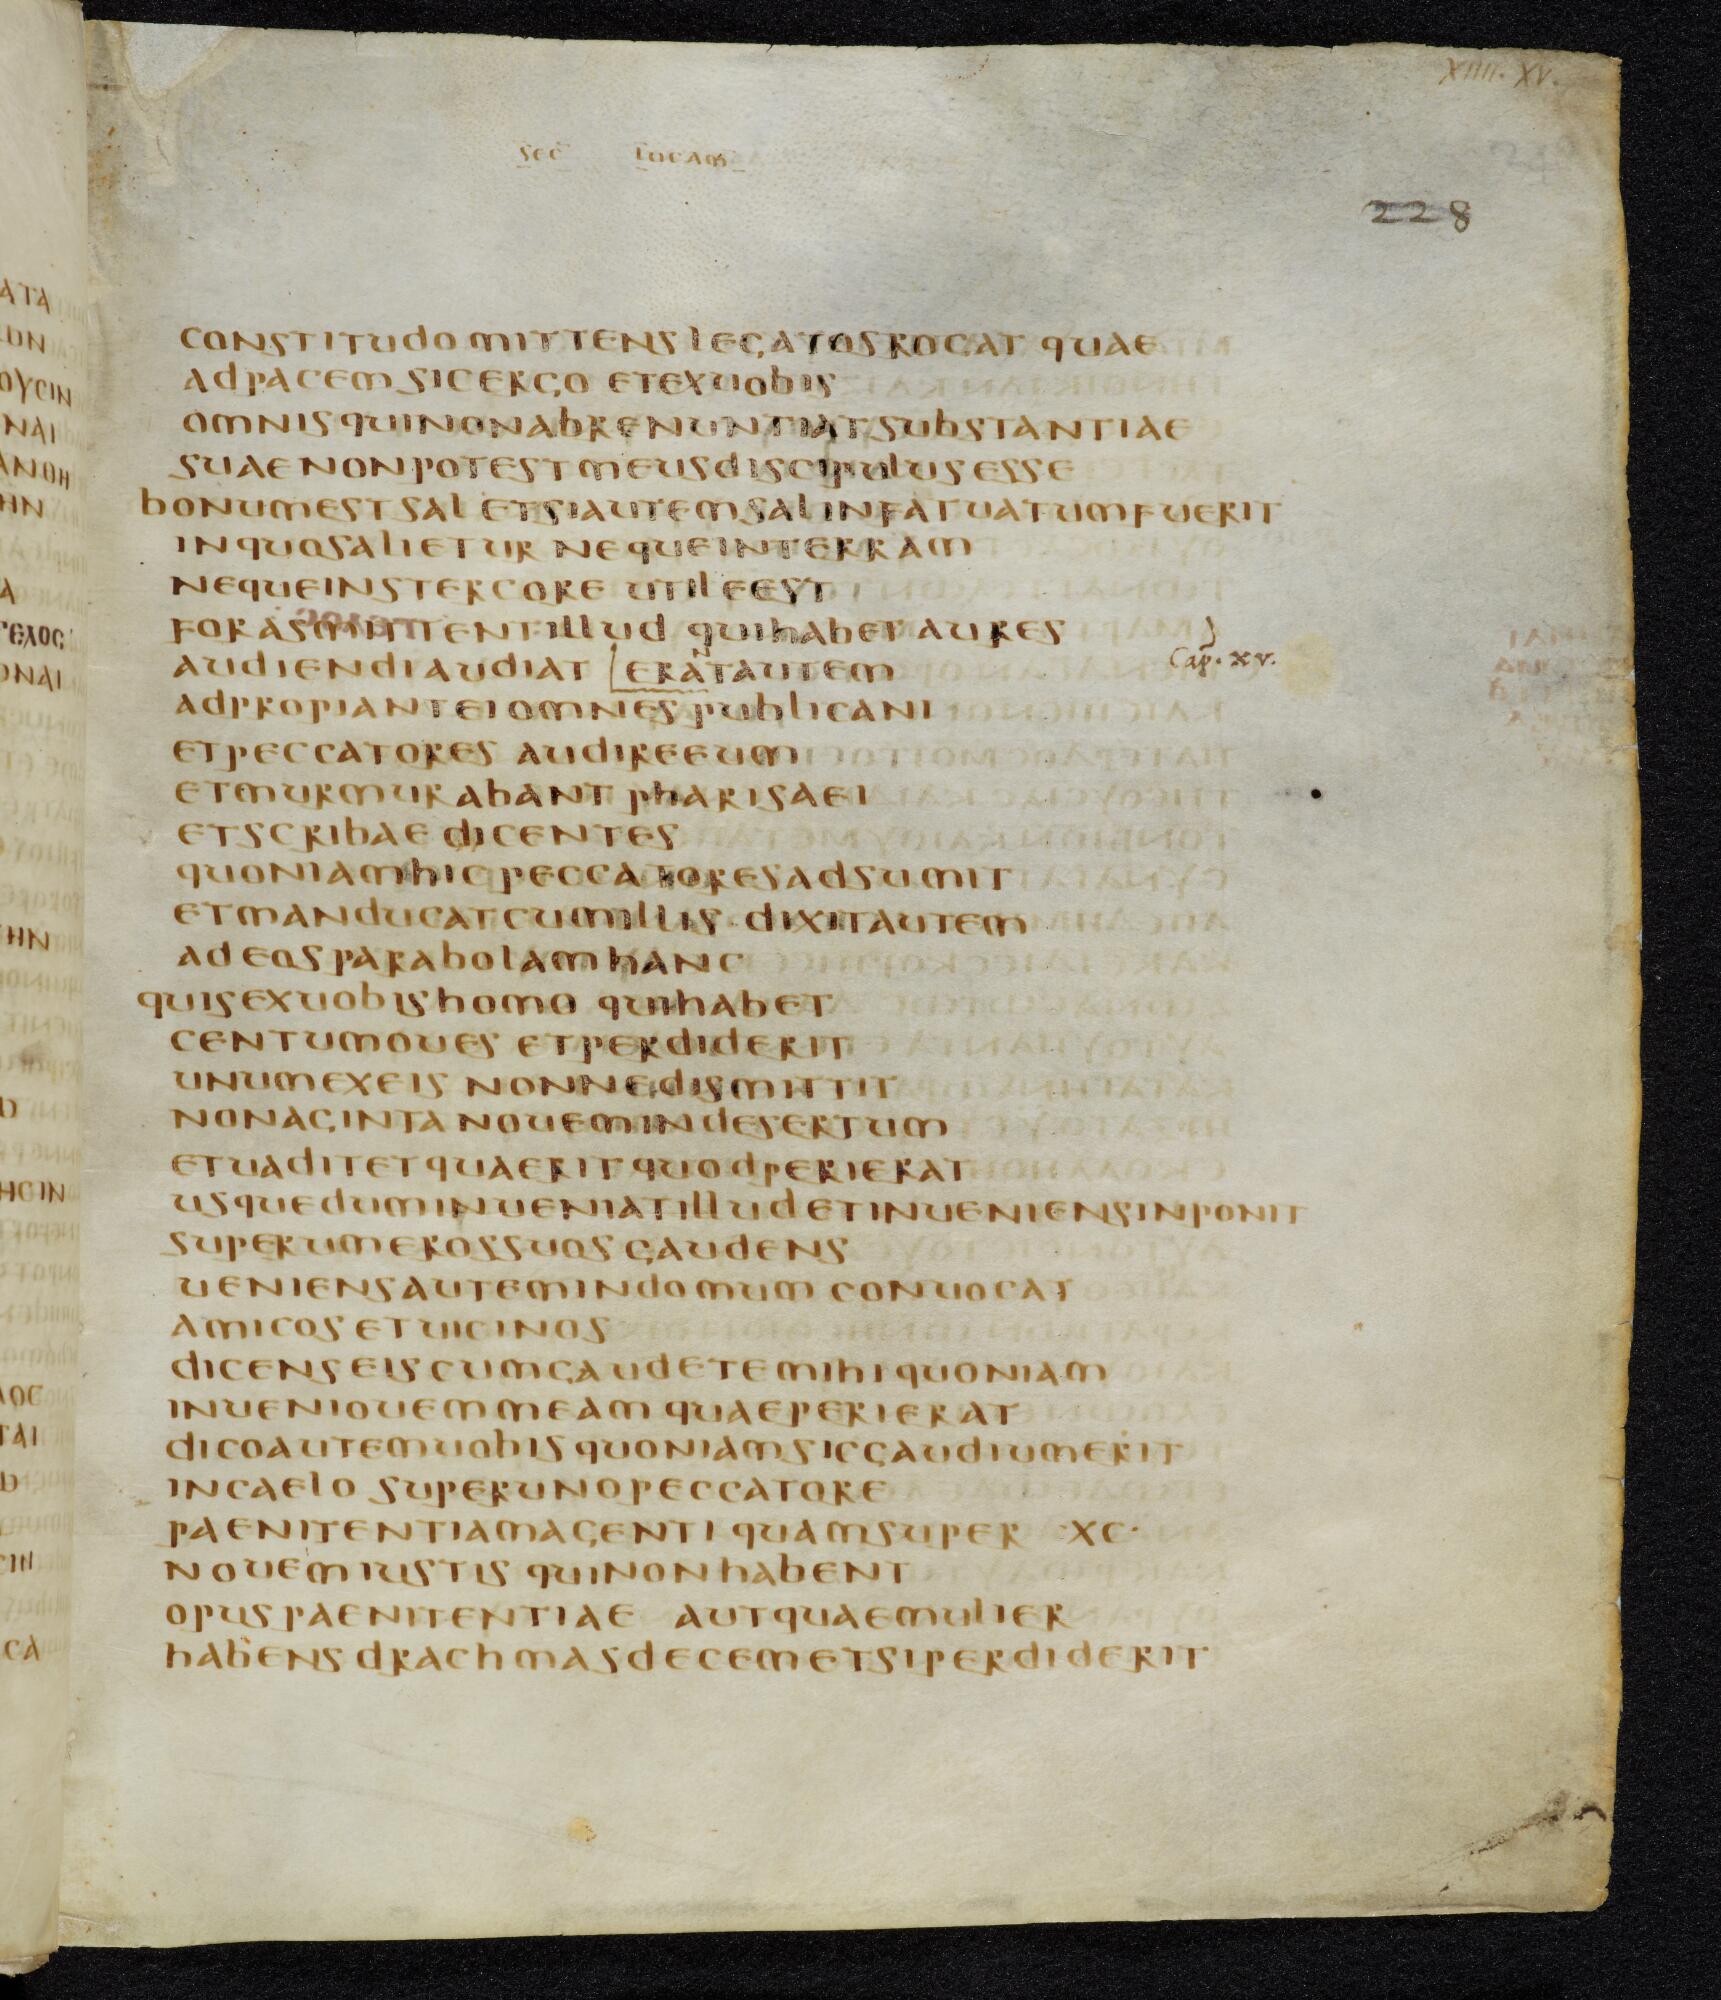 XIIII. XV.
SEC LUCAM
228
CONSTITUDO MITTENS LEGATOS ROGAT QUAE
AD PACEM SIC ERGO ET EX UOBIS
OMNIS QUI NON ABRENUNTIAT SUBSTANTIAE
SUAE NON POTEST MEUS DISCIPULUS ESSE
BONUM EST SAL ET SI AUTEM SAL INFATUATUM FUERIT
IN QUO SALIETUR NEQUE IN TERRAM
NEQUE IN STERCORE UTILE EST
FORAS MITTENT ILLUD QUI HABET AURES
AUDIENDI AUDIAT ERANT AUTEM
Cap. XV.
ADPROPIANT EI OMNES PUBLICANI
ET PECCATORES AUDIRE EUM
ET MURMURABANT PHARISAEI
ET SCRIBAE DICENTES
QUONIAM HIC PECCATORES ADSUMIT
ET MANDUCAT CUM ILLIS · DIXIT AUTEM
AD EOS PARABOLAM HANC
QUIS EX UOBIS HOMO QUI HABET
CENTUM OUES ET PERDIDERIT
UNUM EX EIS NONNE DISMITTIT
NONAGINTA NOUEM IN DESERTUM
ET UADIT ET QUAERIT QUOD PERIERAT
USQUE DUM INUENIAT ILLUD ET INUENIENS INPONIT
SUPER UMEROS SUOS GAUDENS
UENIENS AUTEM IN DOMUM CONUOCAT
AMICOS ET UICINOS
DICENS EIS CUM GAUDETE MIHI QUONIAM
INUENI OUEM MEAM QUAE PERIERAT
DICO AUTEM UOBIS QUONIAM SIC GAUDIUM ERIT
IN CAELO SUPER UNO PECCATORE
PAENITENTIAM AGENTI QUAM SUPER ·XC·
NOUEM IUSTIS QUI NON HABENT
OPUS PAENITENTIAE AUT QUAE MULIER
HABENS DRACHMAS DECEM ET SI PERDIDERIT